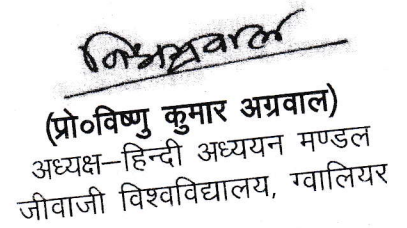 विअग्रवाल
(प्रो०विष्णु कुमार अग्रवाल)
अध्यक्ष–हिन्दी अध्ययन मण्डल
जीवाजी विश्वविद्यालय, ग्वालियर